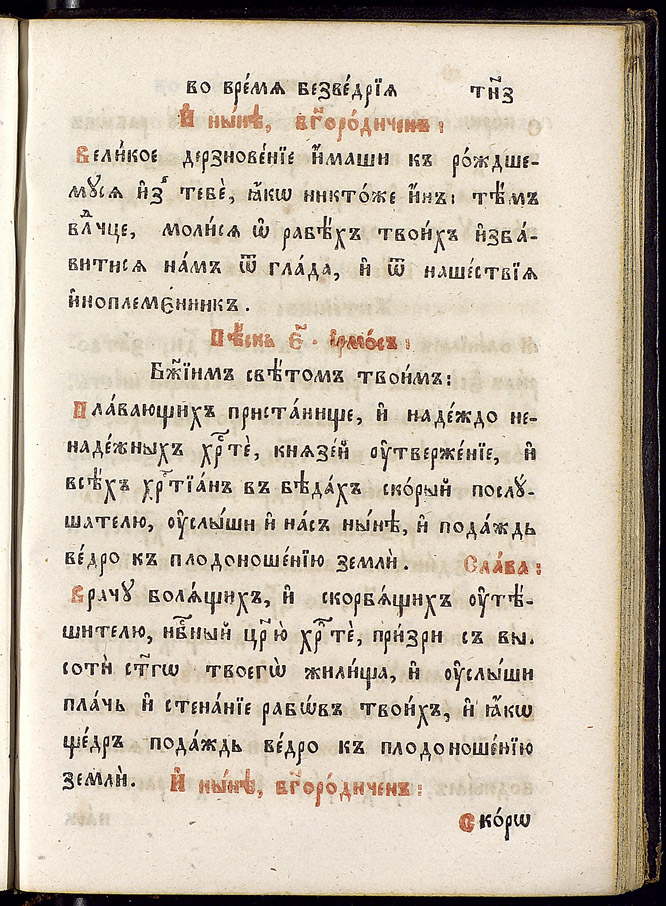 во вре́мѧ безве́дрїѧ тн҃з
И҆ ны́нѣ, бг҃оро́диченъ:
Вели́кое дерзнове́нїе и҆́маши къ ро́ждше-
мꙋсѧ и҆з̾ тебѐ, ꙗ҆́кѡ никто́же и҆́нъ: тѣ́мъ
влⷣчце, моли́сѧ ѡ҆ рабѣ́хъ твои́хъ и҆зба́-
витисѧ на́мъ ѿ гла́да, и҆ ѿ наше́ствїѧ
и҆ноплеме́нникъ.
Пѣ́снь є҃. і҆рмо́съ:
Бж҃їимъ свѣ́томъ твои́мъ:
Пла́вающихъ приста́нище, и҆ наде́ждо не-
наде́жныхъ хрⷭ҇тѐ, кнѧзе́й ᲂу҆тверже́нїе, и҆
всѣ́хъ хрⷭ҇тїа́нъ въ бѣда́хъ ско́рый послꙋ́-
шателю, ᲂу҆слы́ши и҆ на́съ ны́нѣ, и҆ пода́ждь
ве́дро къ плодоноше́нїю землѝ. Сла́ва:
Врачꙋ̀ болѧ́щихъ, и҆ скорбѧ́щихъ ᲂу҆тѣ́-
шителю, нбⷭ҇ный цр҃ю̀ хрⷭ҇тѐ, при́зри съ вы.
соты̀ ст҃гѡ твоегѡ̀ жили́ща, и҆ ᲂу҆слы́ши
пла́чь и҆ стена́нїе рабѡ́въ твои́хъ, и҆ ꙗ҆́кѡ
ще́дръ пода́ждь ве́дро къ плодоноше́нїю
землѝ. И҆ ны́нѣ, бг҃оро́диченъ:
Ско́рѡ